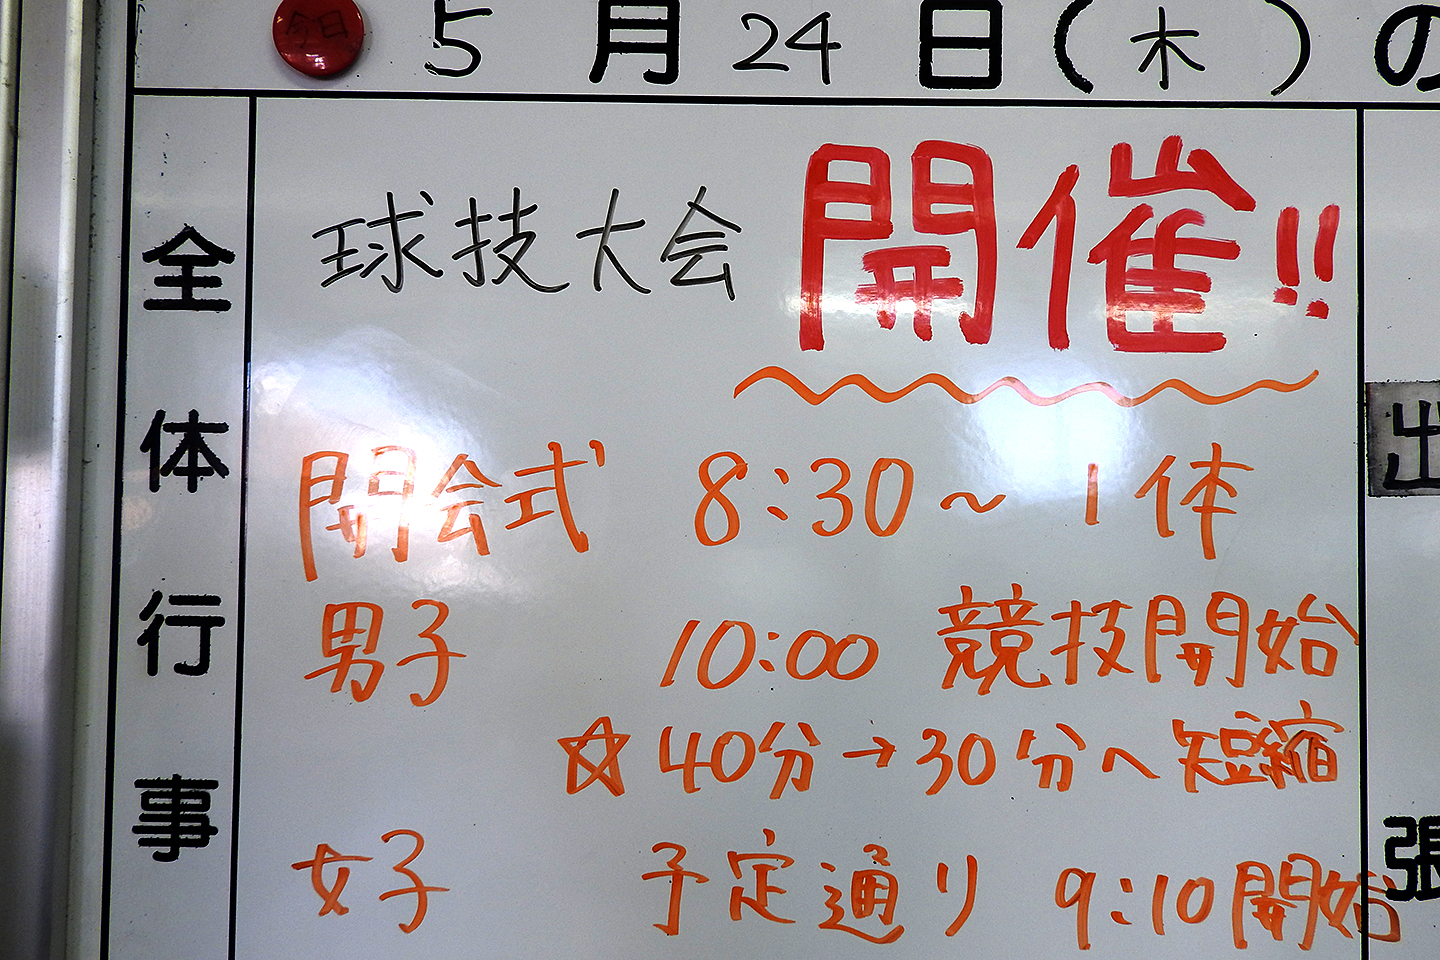 今日
5月24日(木)の
全体行事
球技大会 開催!!
開会式 8:30~ 1体
男子 10:00 競技開始
☆40分→30分へ短縮
女子 予定通り 9:10開始
出
張